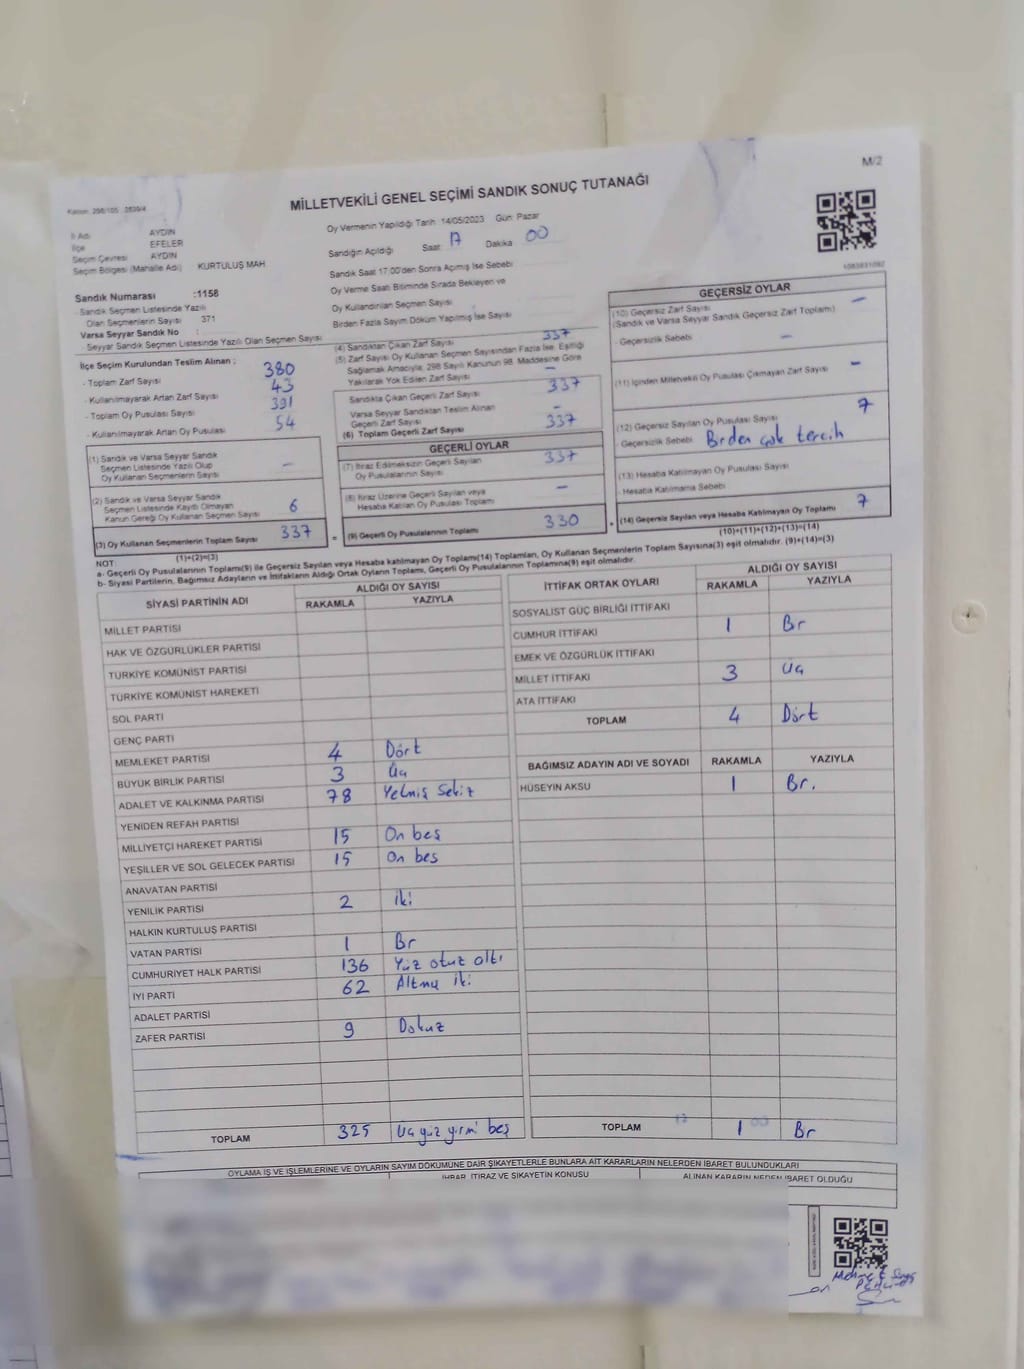 M/2
MİLLETVEKİLİ GENEL SEÇİMİ SANDIK SONUÇ TUTANAĞI
İl Adı AYDIN
İlçe EFELER
Seçim Çevresi AYDIN
Seçim Bölgesi (Mahalle Adı) KURTULUŞ MAH
Sandık Numarası :1158
Sandık Seçmen Listesinde Yazılı
Olan Seçmenlerin Sayısı 371
Varsa Seyyar Sandık No :
Seyyar Sandık Seçmen Listesinde Yazılı Olan Seçmen Sayısı
Oy Vermenin Yapıldığı Tarih 14/05/2023 Gün: Pazar
Sandığın Açıldığı Saat 17 Dakika 00
Sandık Saat 17:00'den Sonra Açımış İse Sebebi
Oy Verme Saati Bitiminde Sırada Bekleyen ve
Oy Kullandırılan Seçmen Sayısı
Birden Fazla Sayım Döküm Yapılmış İse Sayısı
İlçe Seçim Kurulundan Teslim Alınan ;
- Toplam Zarf Sayısı 380
- Kullanılmayarak Artan Zarf Sayısı 43
- Toplam Oy Pusulası Sayısı 391
- Kullanılmayarak Artan Oy Pusulası 54
(1) Sandık ve Varsa Seyyar Sandık
Seçmen Listesinde Yazılı Olup
Oy Kullanan Seçmenlerin Sayısı –
(2) Sandık ve Varsa Seyyar Sandık
Seçmen Listesinde Kayıtlı Olmayan
Kanun Gereği Oy Kullanan Seçmen Sayısı 6
(3) Oy Kullanan Seçmenlerin Toplam Sayısı 337
(1)+(2)=(3)
(4) Sandıktan Çıkan Zarf Sayısı 337
(5) Zarf Sayısı Oy Kullanan Seçmen Sayısından Fazla İse, Eşitliği
Sağlamak Amacıyla, 298 Sayılı Kanunun 98. Maddesine Göre
Yakılarak Yok Edilen Zarf Sayısı –
Sandıkta Çıkan Geçerli Zarf Sayısı 337
Varsa Seyyar Sandıktan Teslim Alınan
Geçerli Zarf Sayısı –
(6) Toplam Geçerli Zarf Sayısı 337
GEÇERLİ OYLAR
(7) İtiraz Edilmeksizin Geçerli Sayılan
Oy Pusulalarının Sayısı 337
(8) İtiraz Üzerine Geçerli Sayılan veya
Hesaba Katılan Oy Pusulası Toplamı –
(9) Geçerli Oy Pusulalarının Toplamı 330
GEÇERSİZ OYLAR
(10) Geçersiz Zarf Sayısı –
(Sandık ve Varsa Seyyar Sandık Geçersiz Zarf Toplamı)
- Geçersizlik Sebebi –
(11) İçinden Milletvekili Oy Pusulası Çıkmayan Zarf Sayısı –
(12) Geçersiz Sayılan Oy Pusulası Sayısı 7
- Geçersizlik Sebebi Birden çok tercih
(13) Hesaba Katılmayan Oy Pusulası Sayısı
- Hesaba Katılmama Sebebi
(14) Geçersiz Sayılan veya Hesaba Katılmayan Oy Toplamı 7
(10)+(11)+(12)+(13)=(14)
NOT
a- Geçerli Oy Pusulalarının Toplamı(9) ile Geçersiz Sayılan veya Hesaba katılmayan Oy Toplamı(14) Toplamları, Oy Kullanan Seçmenlerin Toplam Sayısına(3) eşit olmalıdır. (9)+(14)=(3)
b- Siyasi Partilerin, Bağımsız Adayların ve İttifakların Aldığı Ortak Oyların Toplamı, Geçerli Oy Pusulalarının Toplamına(9) eşit olmalıdır.
SİYASİ PARTİNİN ADI ALDIĞI OY SAYISI
RAKAMLA YAZIYLA
MİLLET PARTİSİ
HAK VE ÖZGÜRLÜKLER PARTİSİ
TÜRKİYE KOMÜNİST PARTİSİ
TÜRKİYE KOMÜNİST HAREKETİ
SOL PARTİ
GENÇ PARTİ
MEMLEKET PARTİSİ 4 Dört
BÜYÜK BİRLİK PARTİSİ 3 Üç
ADALET VE KALKINMA PARTİSİ 78 Yetmiş Sekiz
YENİDEN REFAH PARTİSİ
MİLLİYETÇİ HAREKET PARTİSİ 15 On beş
YEŞİLLER VE SOL GELECEK PARTİSİ 15 On beş
ANAVATAN PARTİSİ
YENİLİK PARTİSİ 2 iki
HALKIN KURTULUŞ PARTİSİ
VATAN PARTİSİ 1 Bir
CUMHURİYET HALK PARTİSİ 136 Yüz otuz altı
İYİ PARTİ 62 Altmış iki
ADALET PARTİSİ
ZAFER PARTİSİ 9 Dokuz
TOPLAM 325 Üçyüz yirmi beş
İTTİFAK ORTAK OYLARI ALDIĞI OY SAYISI
RAKAMLA YAZIYLA
SOSYALİST GÜÇ BİRLİĞİ İTTİFAKI
CUMHUR İTTİFAKI 1 Bir
EMEK VE ÖZGÜRLÜK İTTİFAKI
MİLLET İTTİFAKI 3 Üç
ATA İTTİFAKI
TOPLAM 4 Dört
BAĞIMSIZ ADAYIN ADI VE SOYADI RAKAMLA YAZIYLA
HÜSEYİN AKSU 1 Bir.
TOPLAM 1 Bir
OYLAMA İŞ VE İŞLEMLERİNE VE OYLARIN SAYIM DÖKÜMÜNE DAİR ŞİKAYETLERLE BUNLARA AİT KARARLARIN NELERDEN İBARET BULUNDUKLARI
İHBAR, İTİRAZ VE ŞİKAYETİN KONUSU ALINAN KARARIN NEDEN İBARET OLDUĞU